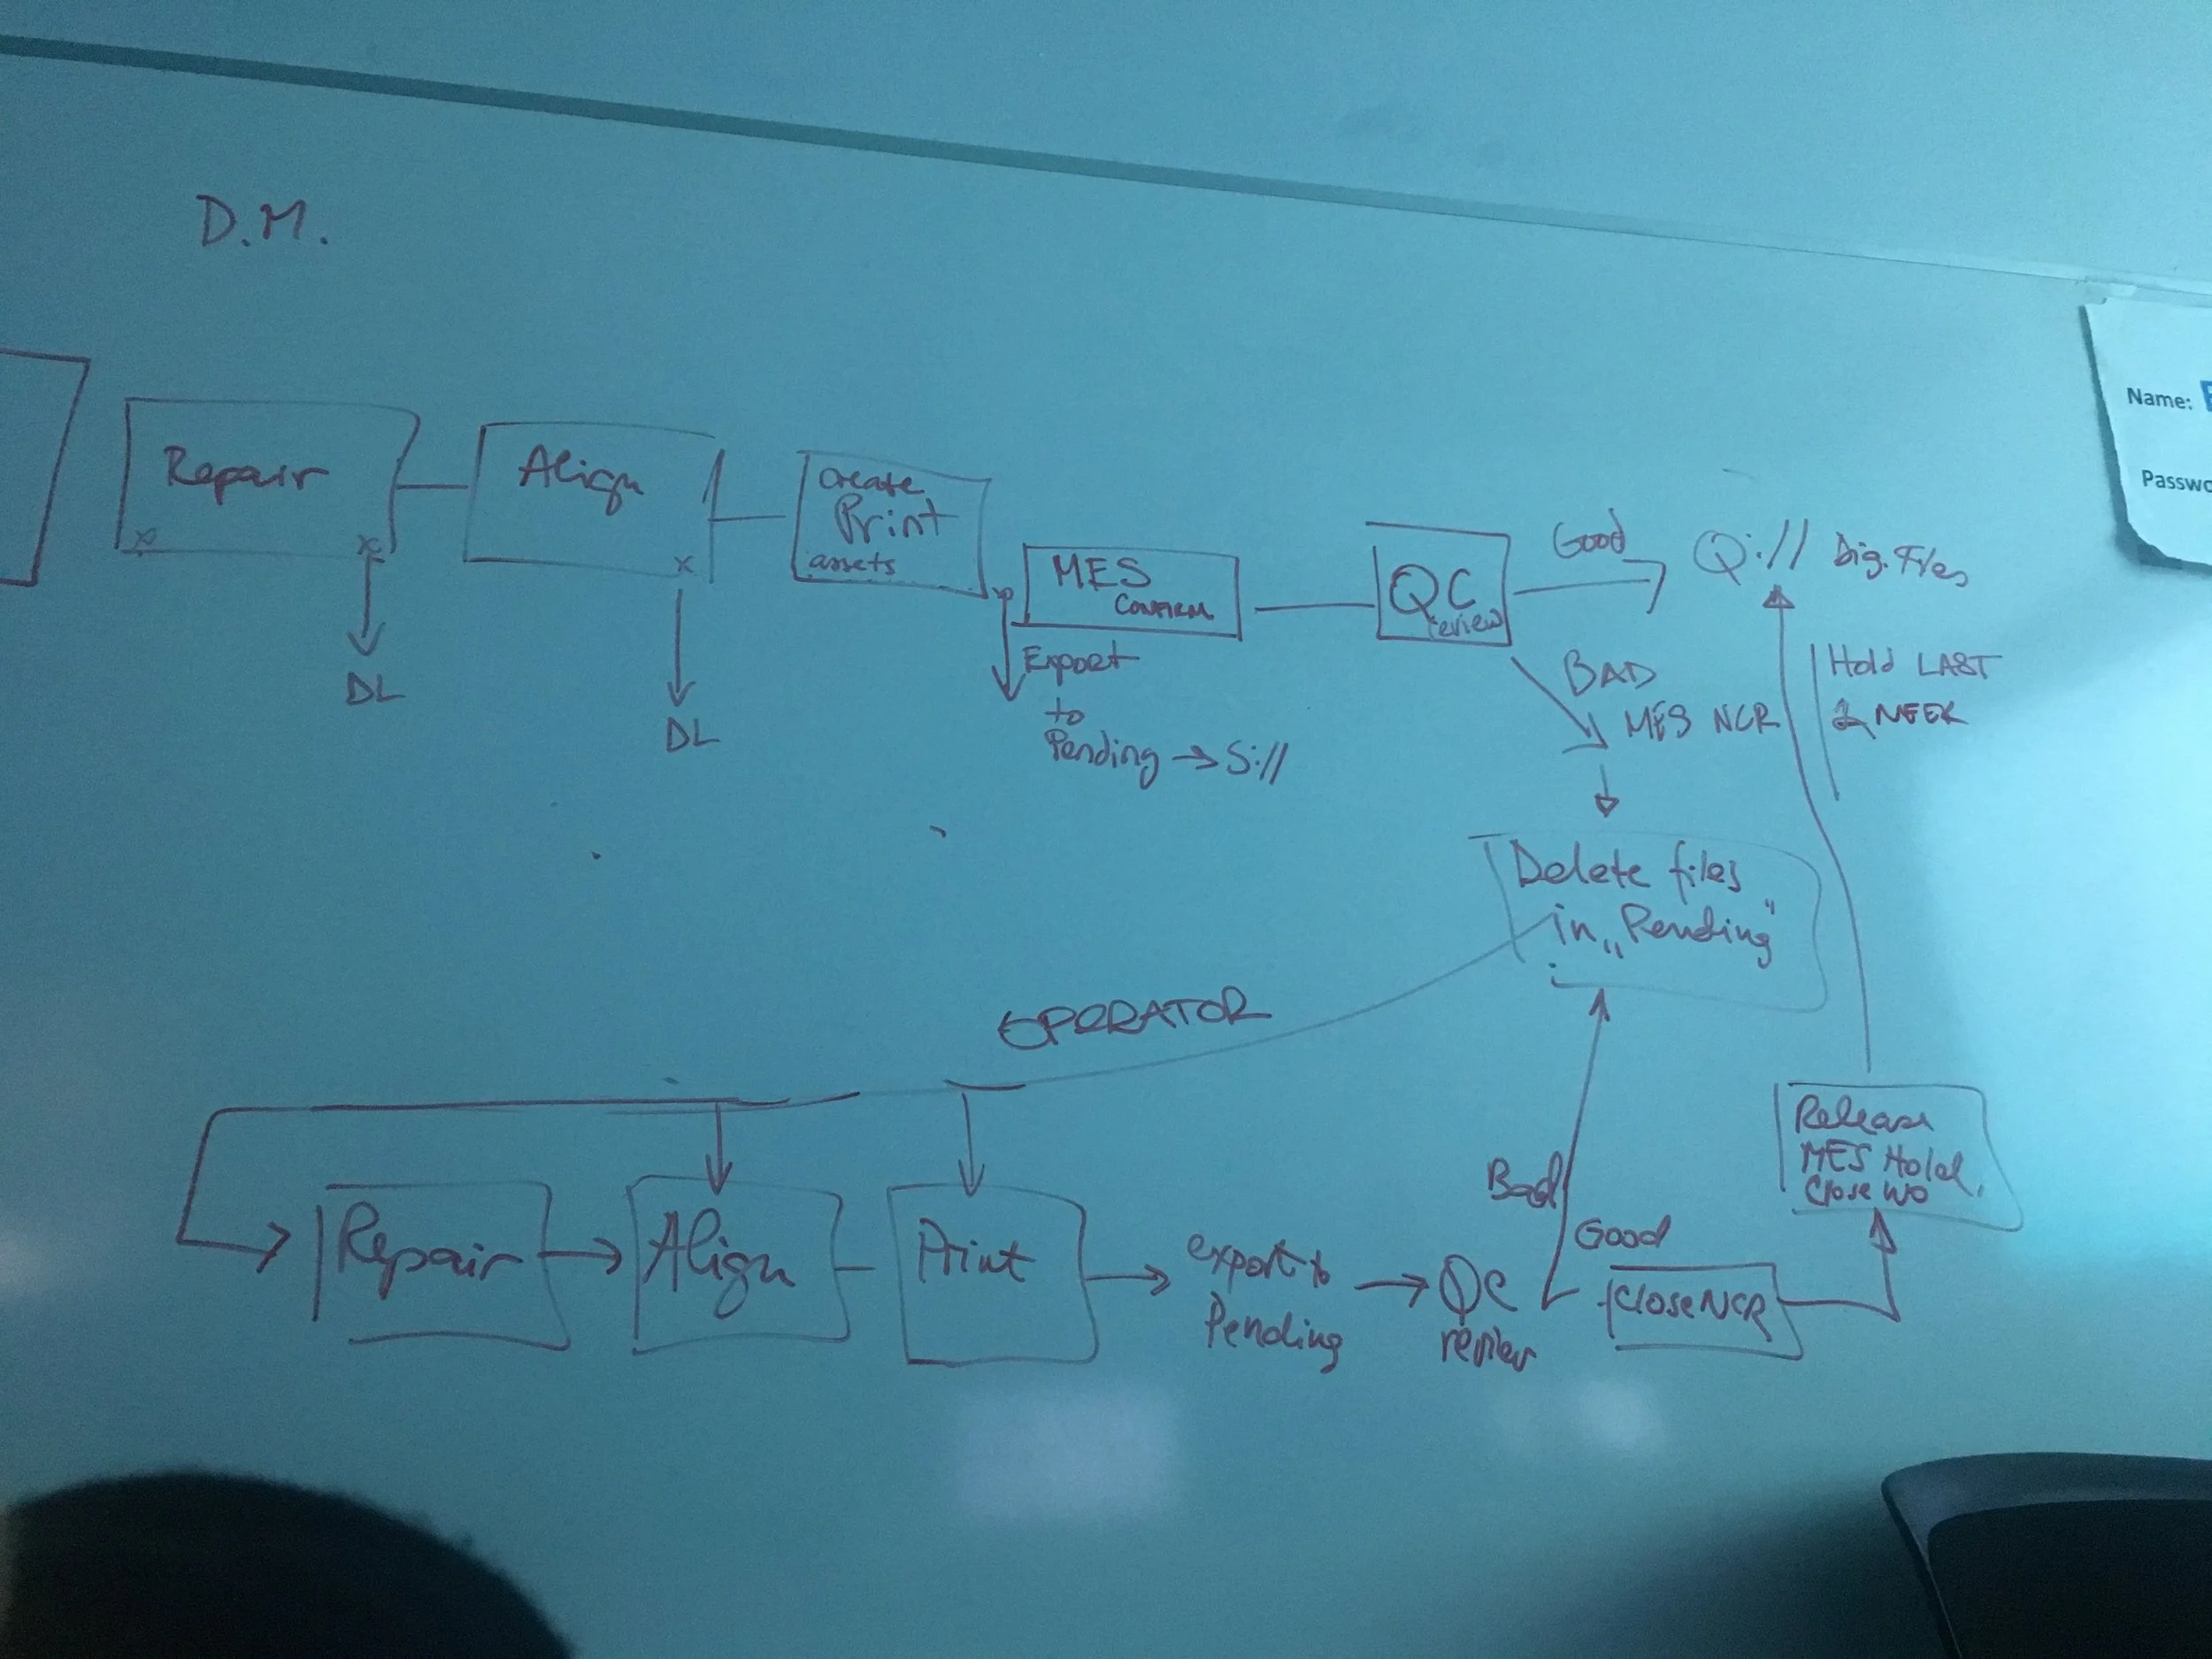 D.M.
Repair
Align
create
Print
assets
MES
CONFIRM
QC
review
Good
Q:// Dig. Files
DL
DL
Export
to
Pending → S://
BAD
MES NCR
Hold LAST
WEEK
Delete files
in „Pending"
OPERATOR
Repair
Align
Print
export to
Pending
QC
review
Bad
Good
Close NCR
Release
MES Hold,
Close WO
Name:
Passwo